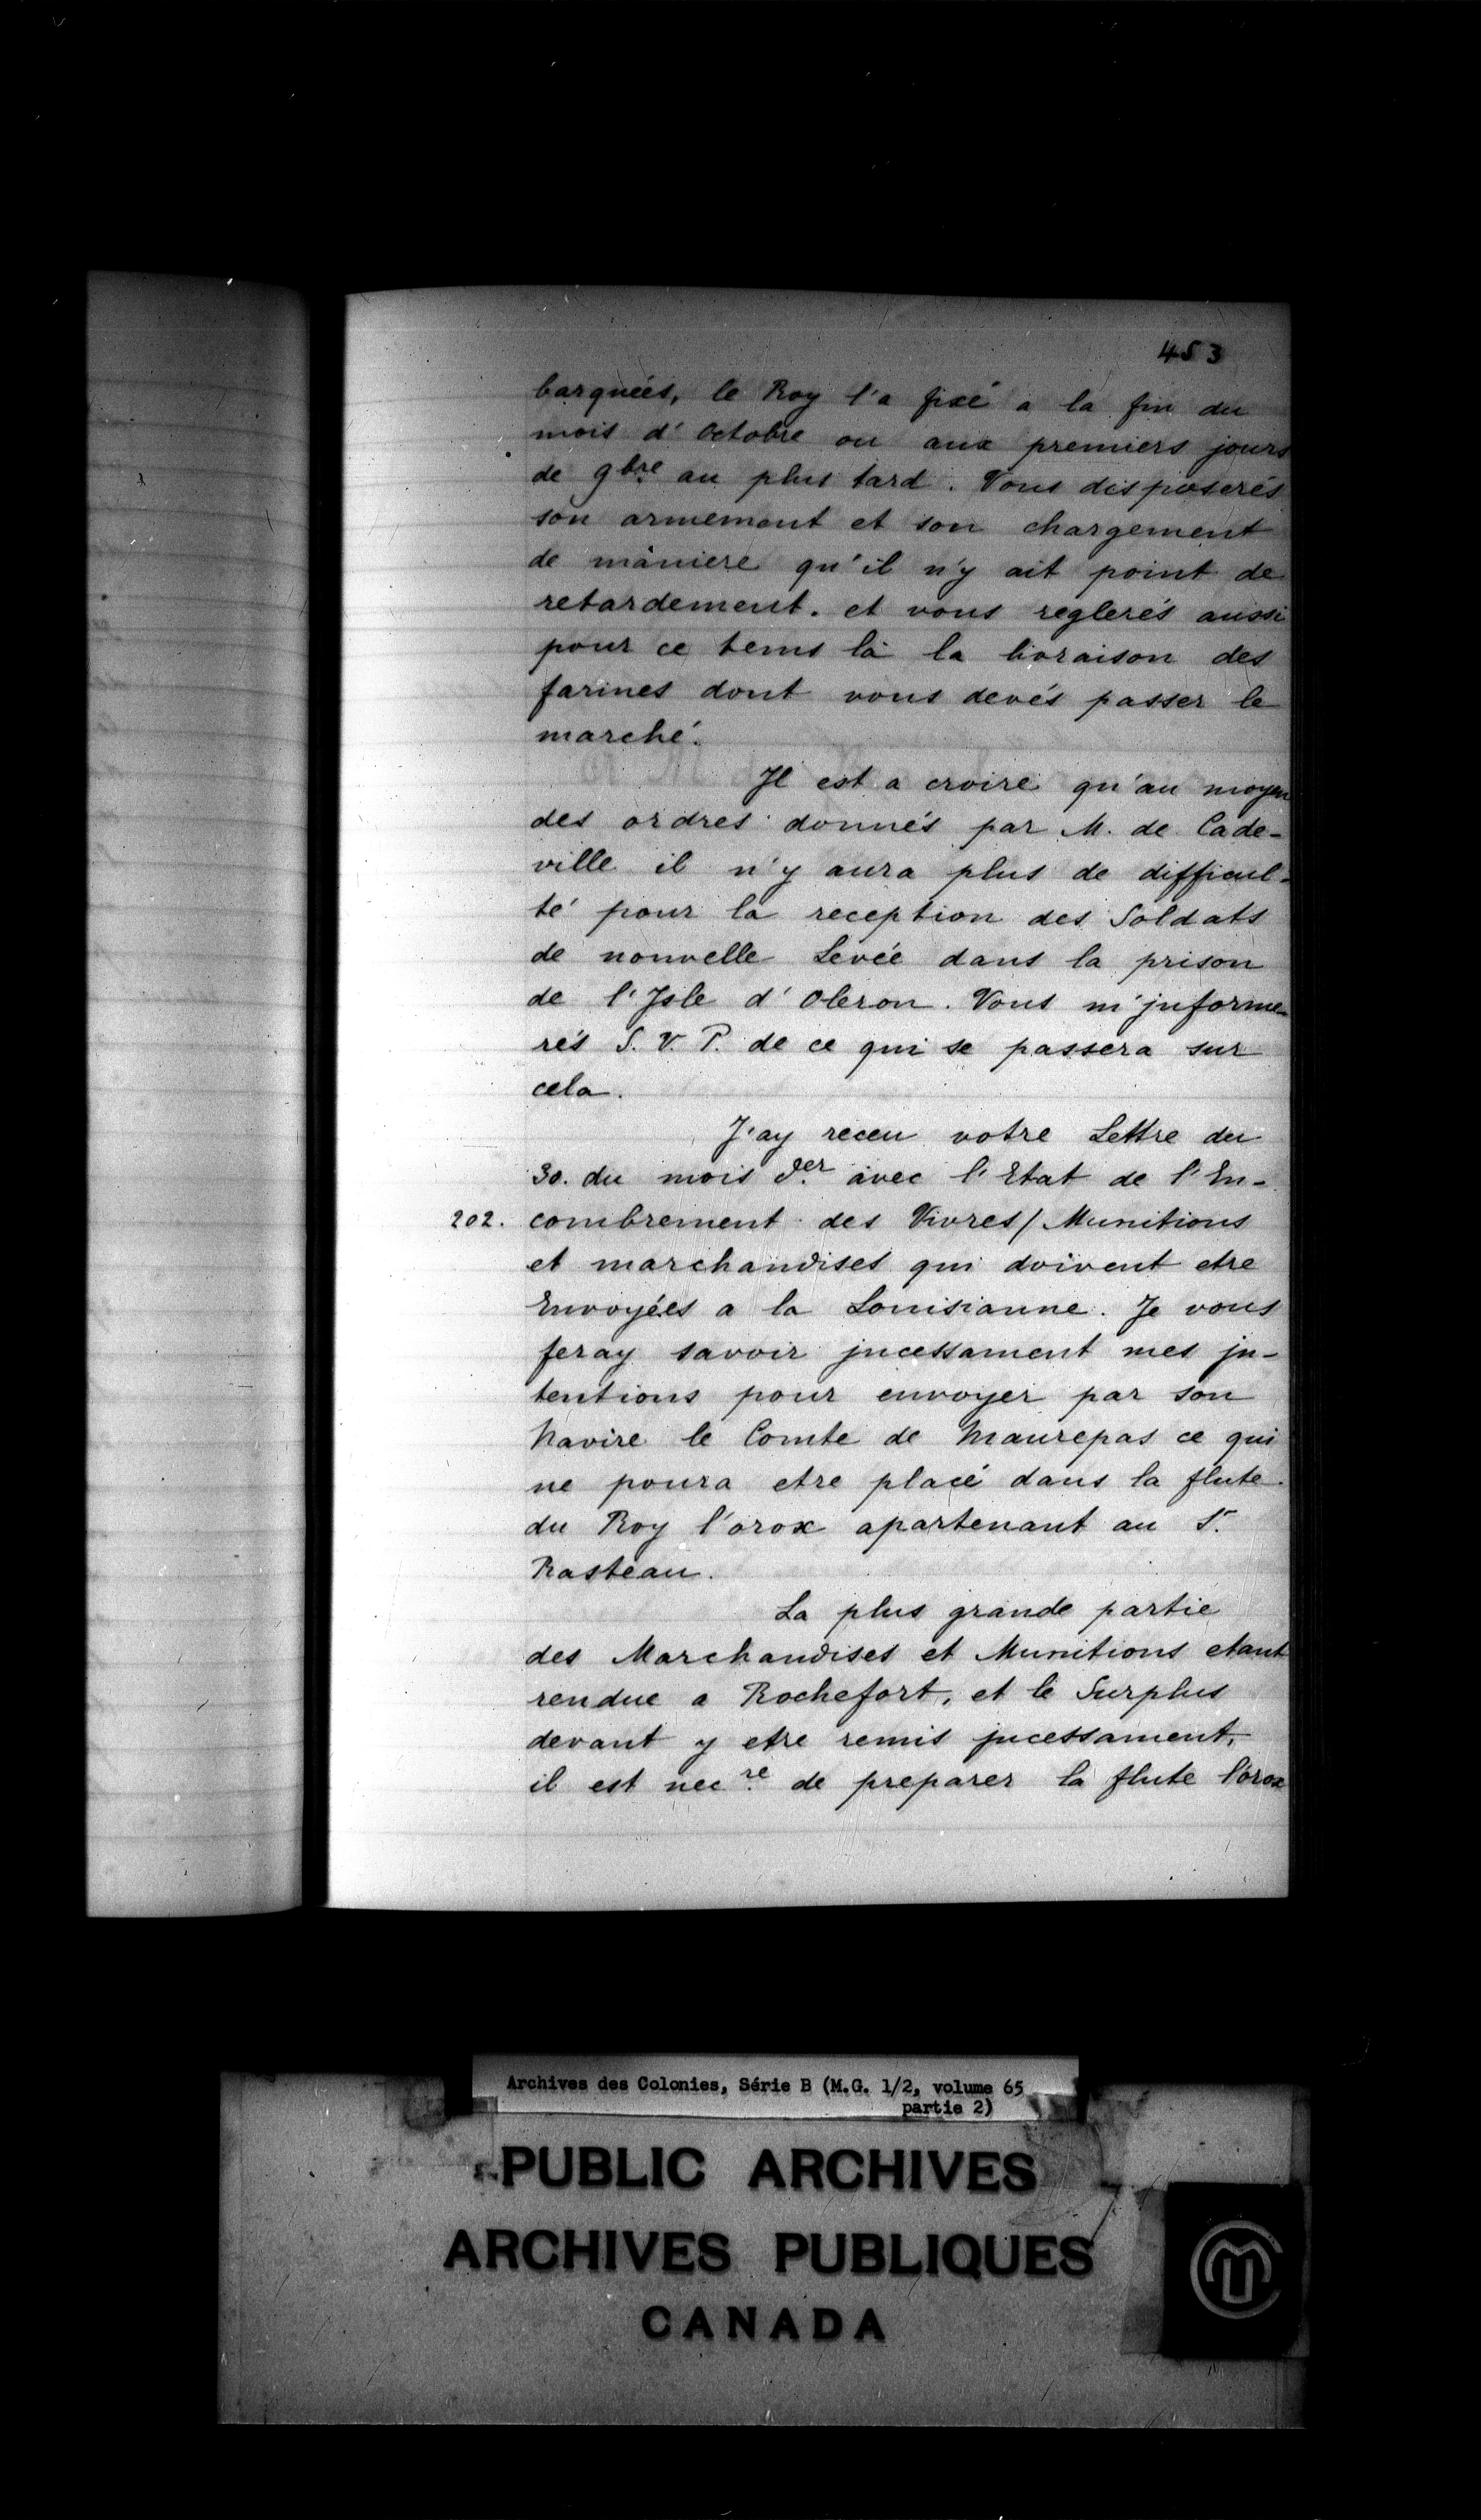 453
barquées, le Roy l'a fixé a la fin du
mois d'Octobre ou aux premiers jours
de 9bre au plus tard. Vous disposerés
son armement et son chargement
de maniere qu'il n'y ait point de
retardement. et vous reglerés aussi
pour ce tems là la livraison des
farines dont vous devés passer le
marché.
Jl est a croire qu'au moyen
des ordres donnés par M. de Cade-
ville il n'y aura plus de difficul-
té pour la reception des Soldats
de nouvelle Levée dans la prison
de l'Jsle d'Oleron. Vous m'jnforme-
rés S. V. P. de ce qui se passera sur
cela.
J'ay receu votre Lettre du
30. du mois der avec l'Etat de l'En-
202. combrement des Vivres/Munitions
et marchandises qui doivent etre
Envoyées a la Louisianne. Je vous
feray savoir jncessament mes jn-
tentions pour envoyer par son
Navire le Comte de Maurepas ce qui
ne poura etre placé dans la flute
du Roy l'orox apartenant au Sr.
Rasteau.
La plus grande partie
des Marchandises et Munitions etant
rendue a Rochefort, et le Surplus
devant y etre remis jncessament,
il est necre de preparer la flute l'orox
Archives des Colonies, Série B (M.G. 1/2, volume 65
partie 2)
PUBLIC ARCHIVES
ARCHIVES PUBLIQUES
CANADA